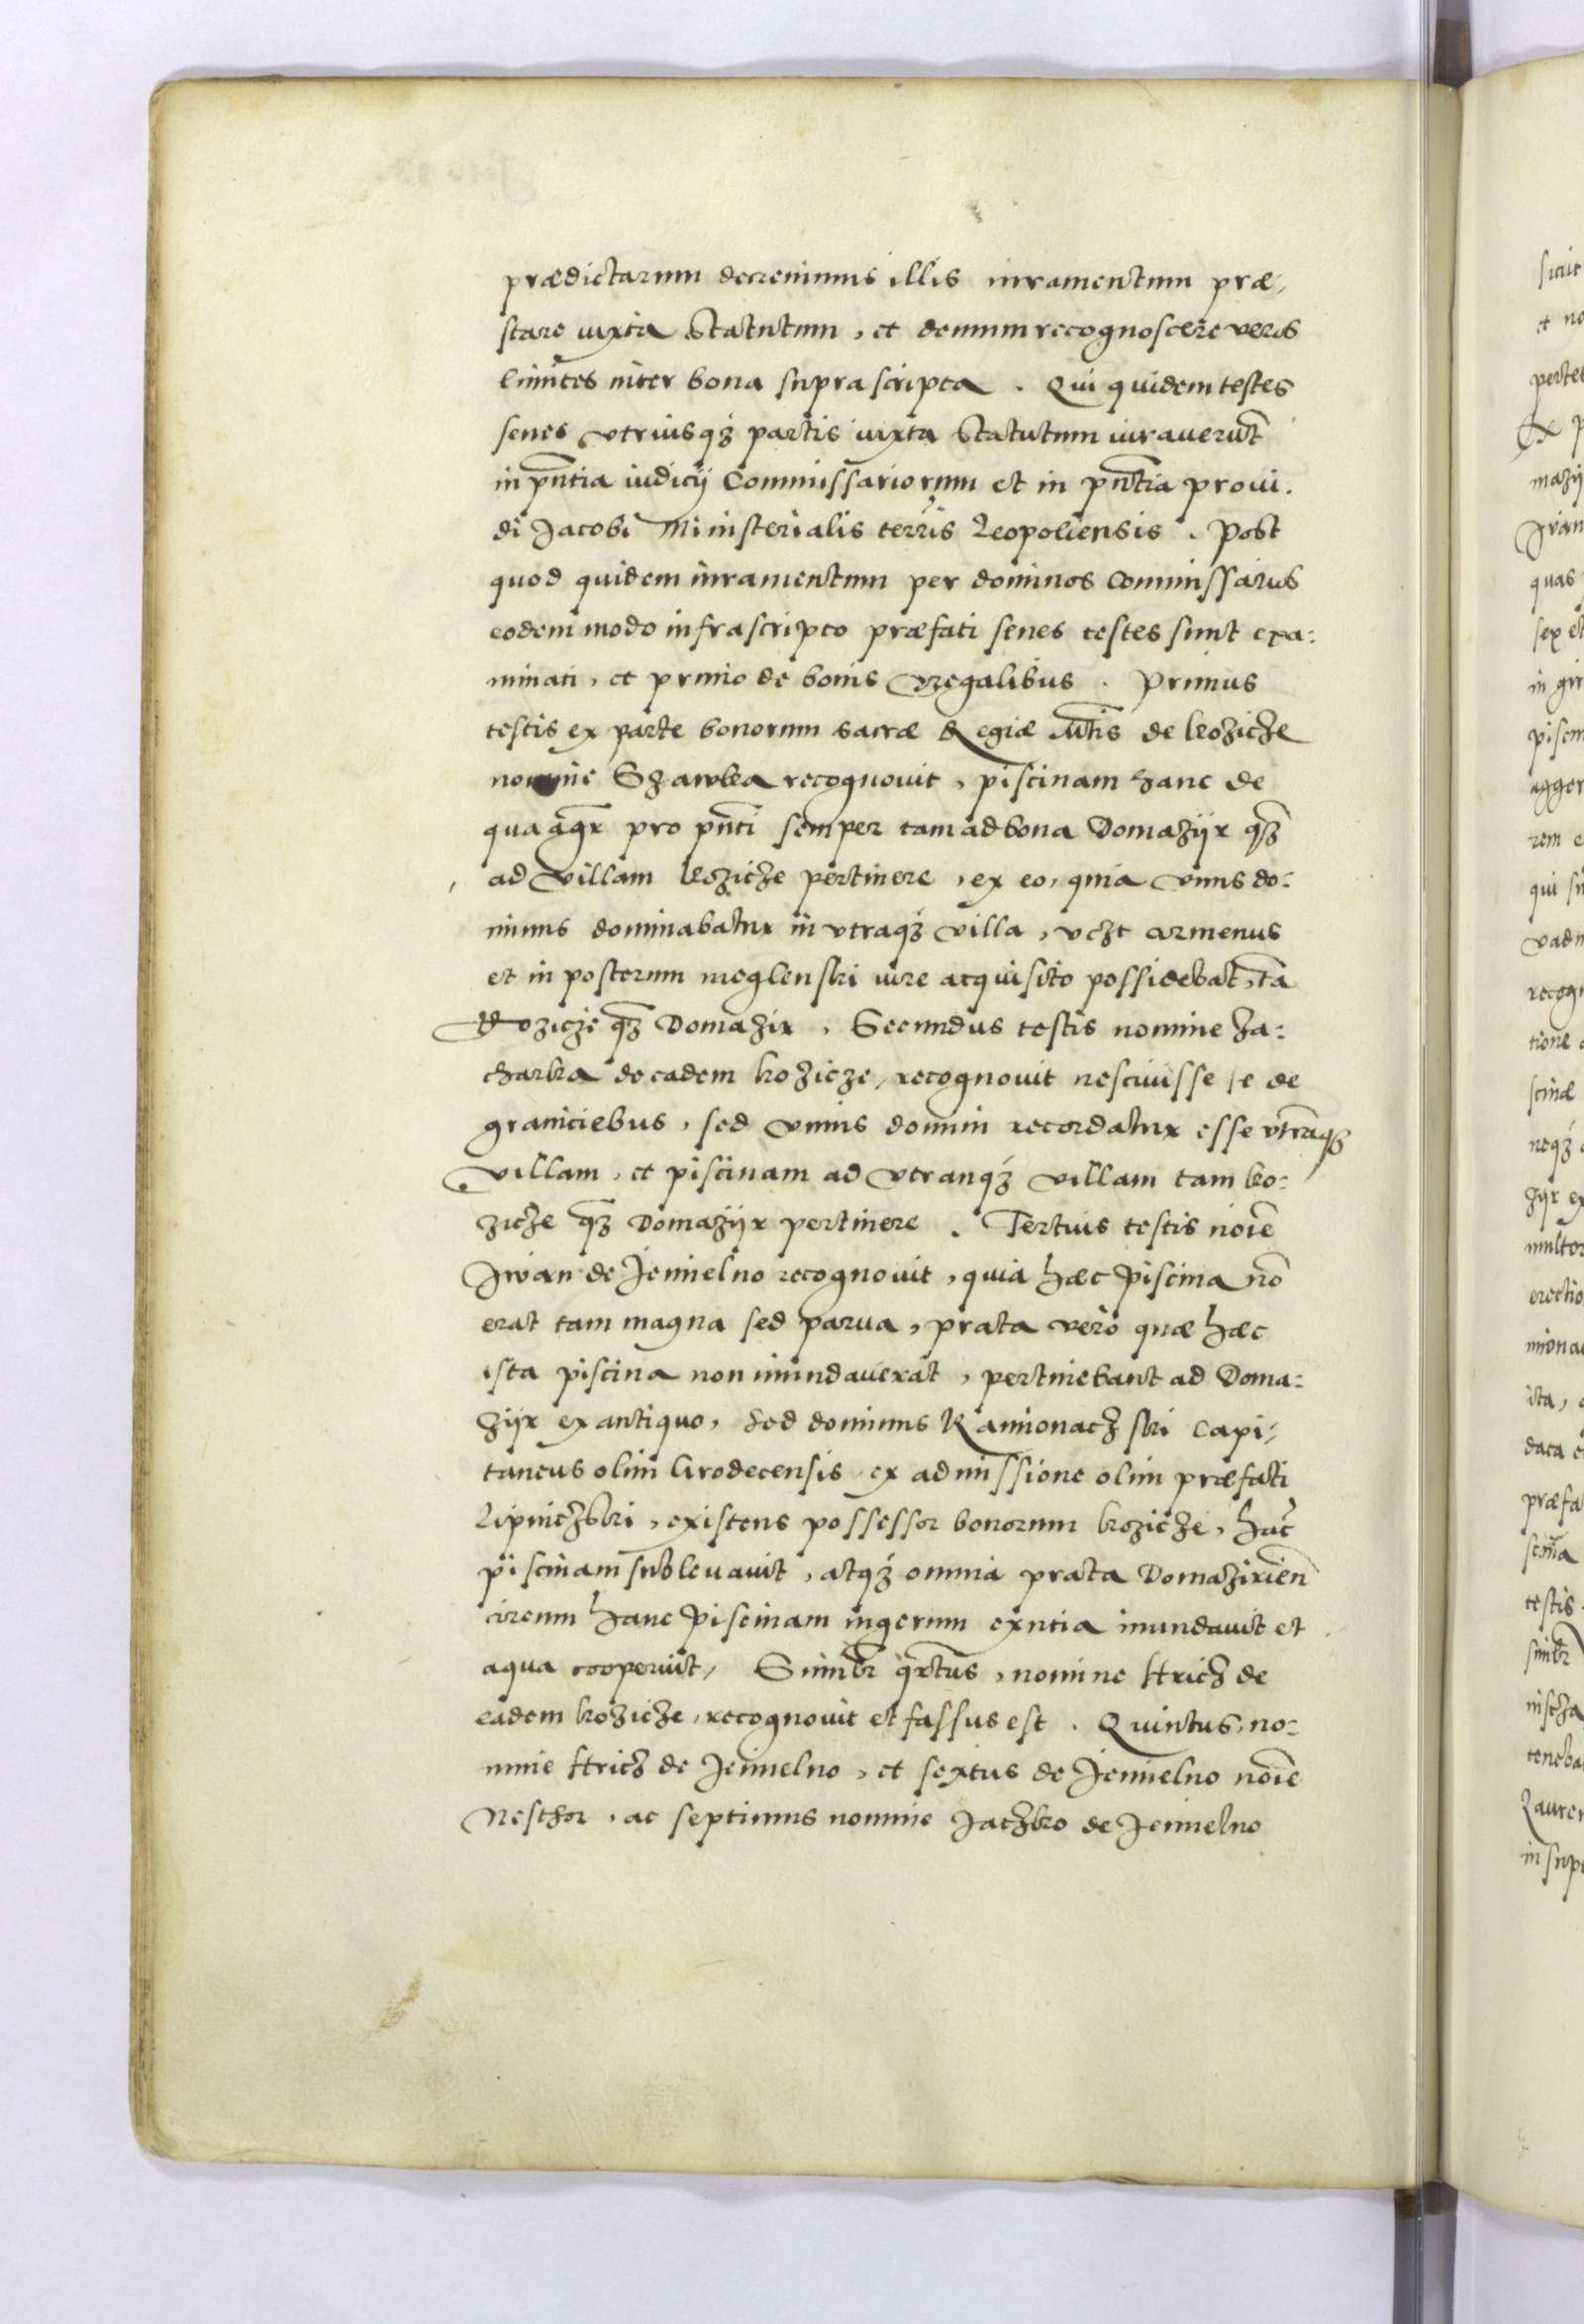 prædictarum decreuimus illis iuramentum præ,
stare iuxta Statutum, et demum recognoscere veros
limites inter bona suprascripta. Qui quidem testes
senes vtriusqȝ partis iuxta Statutum iurauerūt
in pn̄tia iudicij Commissariorum et in pn̄tia proui.
di Jacobi Ministerialis terris Leopoliensis. Post
quod quidem iuramentum per dominos Commissarios
eodem modo infrascripto præfati senes testes sunt exa:
minati, et primo de bonis Regalibus. Primus
testis ex parte bonorum sacræ Regiæ Mt̄is de kozicze
nomine Szawka recognouit, piscinam hanc de
qua agr̄ pro pn̄ti semper tam ad bona Domazijr qȝ̄
ad villam kozicze pertinere, ex eo, quia vnus do:
minus dominabatur in vtraqȝ villa, vczt armenus
et in posterum meglenski iure acquisito possidebat, tā
Kozicze qȝ̄ Domazir. Secundus testis nomine Za:
charka de eadem kozicze, recognouit nesciuisse se de
graniciebus, sed vnius domini recordatur esse vtrāqȝ
villam, et piscinam ad vtranqȝ villam tam ko:
zicze qȝ̄ Domazijr pertinere. Tertius testis noīe
Jwan de Jemielno recognouit, quia hæc piscina nō
erat tam magna sed parua, prata vero quæ hæc
ista piscina non inundauerat, pertinebant ad Doma:
zijr ex antiquo, sed dominus Kamionaczski Capi,
taneus olim Grodecensis ex admissione olim præfati
Lipniczski, existens possessor bonorum kozicze, hāc
piscinam subleuauit, atqȝ omnia prata Domaziriēn
circum hanc piscinam in gerum exntia inundauit et
aqua cooperuit, Simlr̄ qrtus, nomine Hricz de
eadem kozicze, recognouit et fassus est. Quintus, no:
mine Hricz de Jemielno, et sextus de Jemielno noīe
Nesthor, ac septimus nomine Jaczko de Jemielno